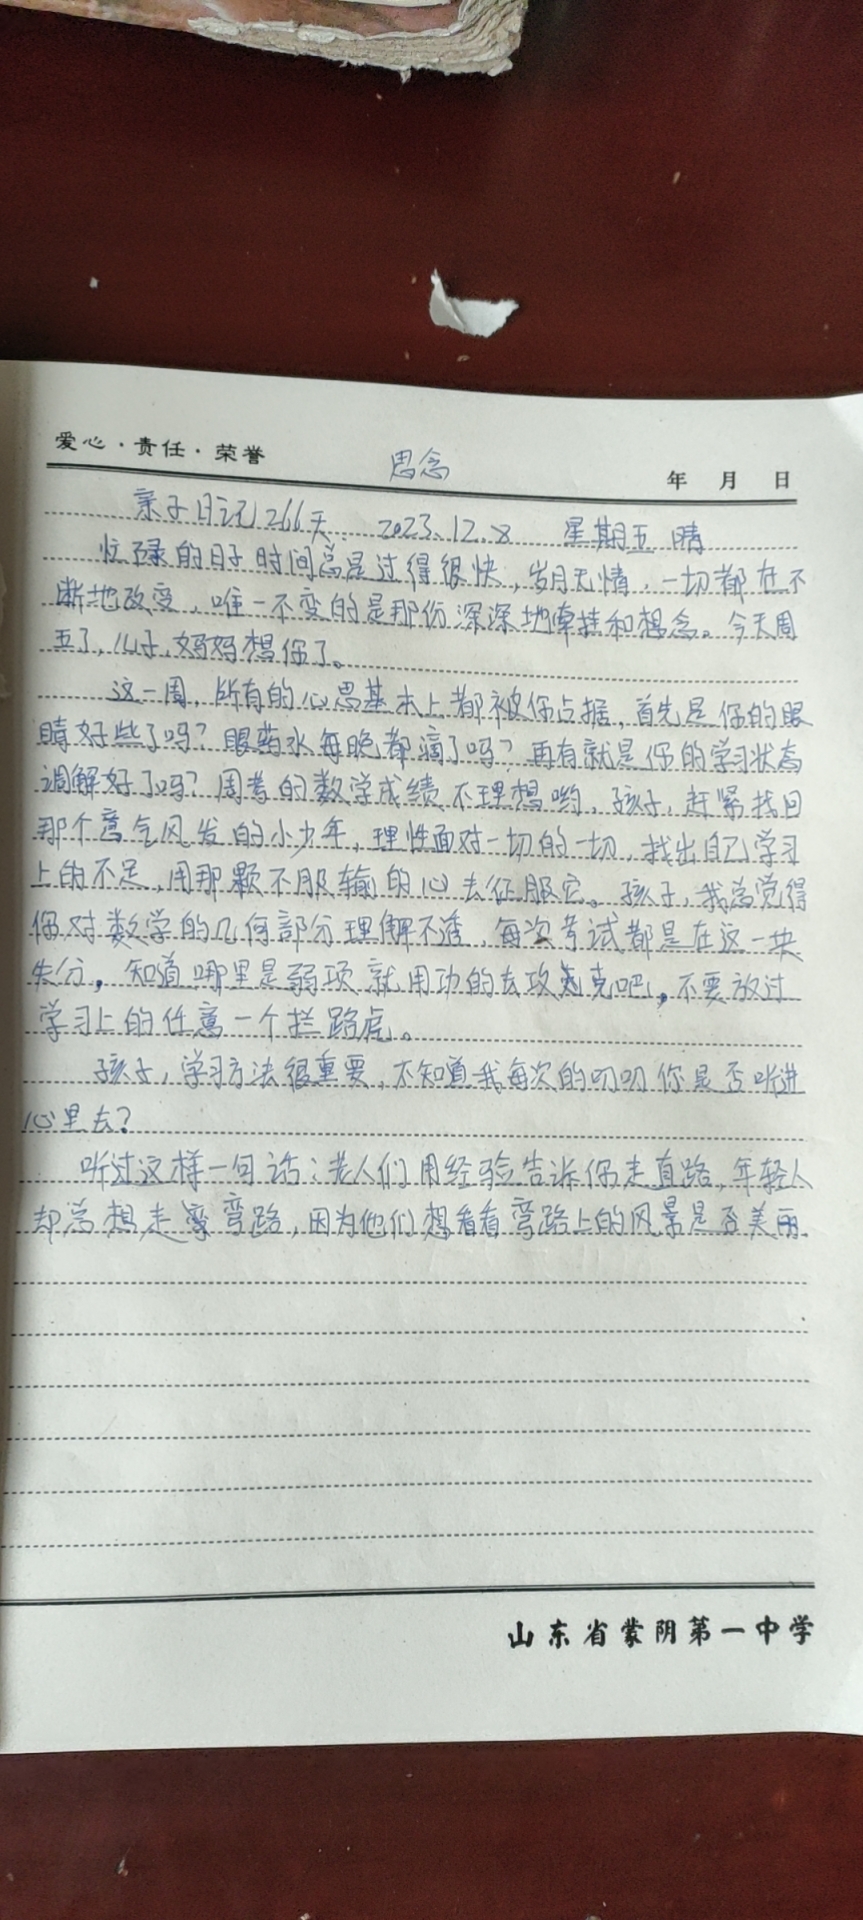 爱心·责任·荣誉
思念
年 月 日
亲子日记266天 2023.12.8 星期五 晴
忙碌的日子时间总是过得很快，岁月无情，一切都在不
断地改变，唯一不变的是那份深深地牵挂和想念。今天周
五了，儿子，妈妈想你了。
这一周，所有的心思基本上都被你占据，首先是你的眼
睛好些了吗？眼药水每晚都滴了吗？再有就是你的学习状态
调解好了吗？周考的数学成绩不理想哟，孩子，赶紧找回
那个意气风发的小少年，理性面对一切的一切，找出自己学习
上的不足，用那颗不服输的心去征服它。孩子，我总觉得
你对数学的几何部分理解不透，每次考试都是在这一块
失分，知道哪里是弱项就用功的去攻克吧，不要放过
学习上的任意一个拦路虎。
孩子，学习方法很重要，不知道我每次的叨叨你是否听进
心里去？
听过这样一句话：老人们用经验告诉你走直路，年轻人
却总想走弯路，因为他们想看看弯路上的风景是否美丽.
山东省蒙阴第一中学